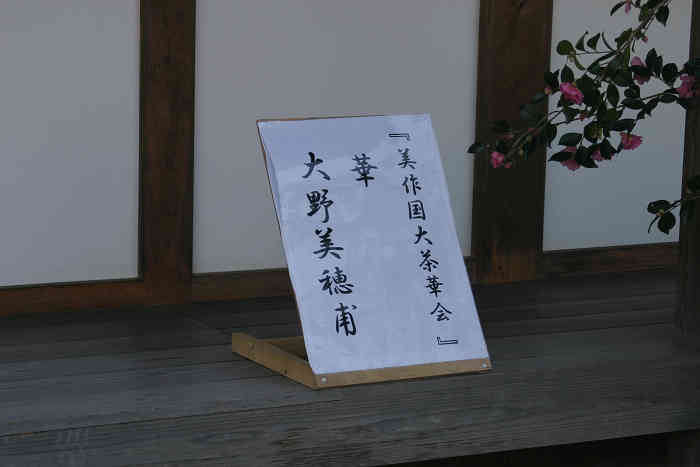 『美作国大茶華会』
華
大野美穂甫